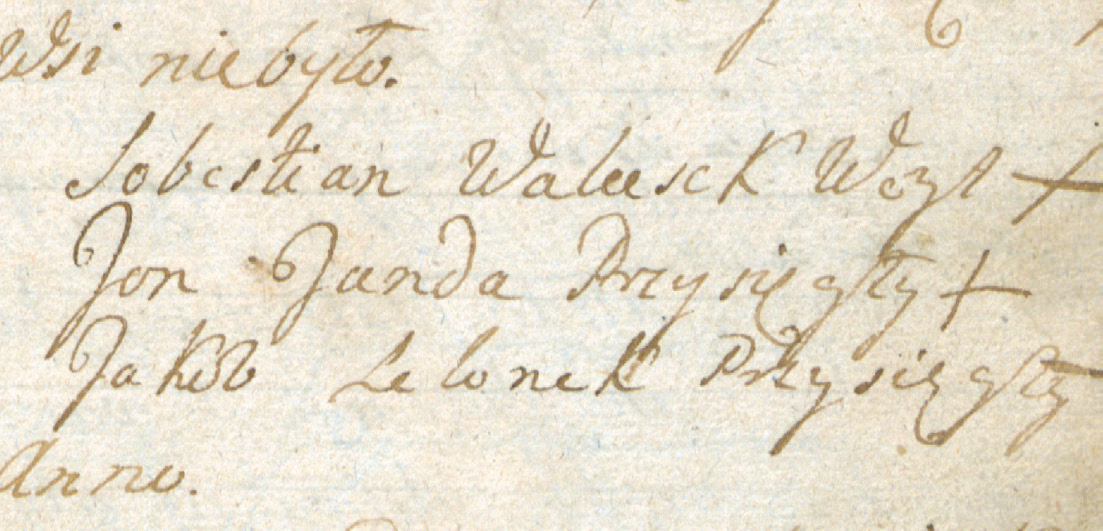 Wsi niebyło.
Sobestian Waleesek Woyt +
Jon Janda Przysięgły +
Jakob Lelonek Przysięgły
Anno.